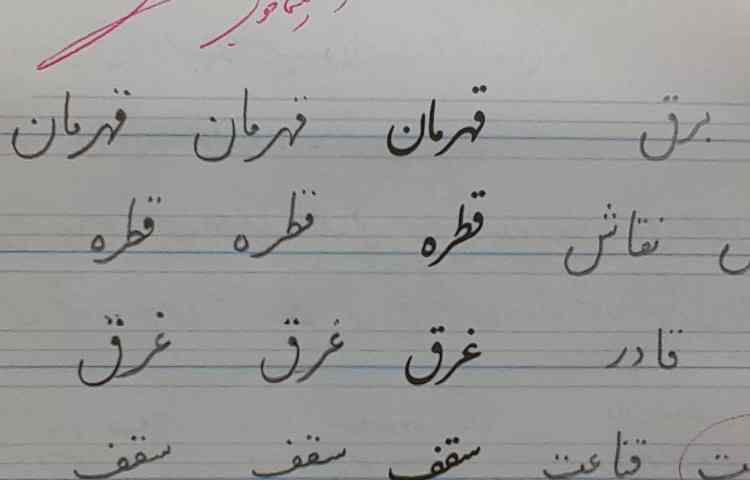 برق قهرمان قهرمان قهرمان
نقاش قطره قطره قطره
قادر غرق غرق غرق
قناعت سقف سقف سقف